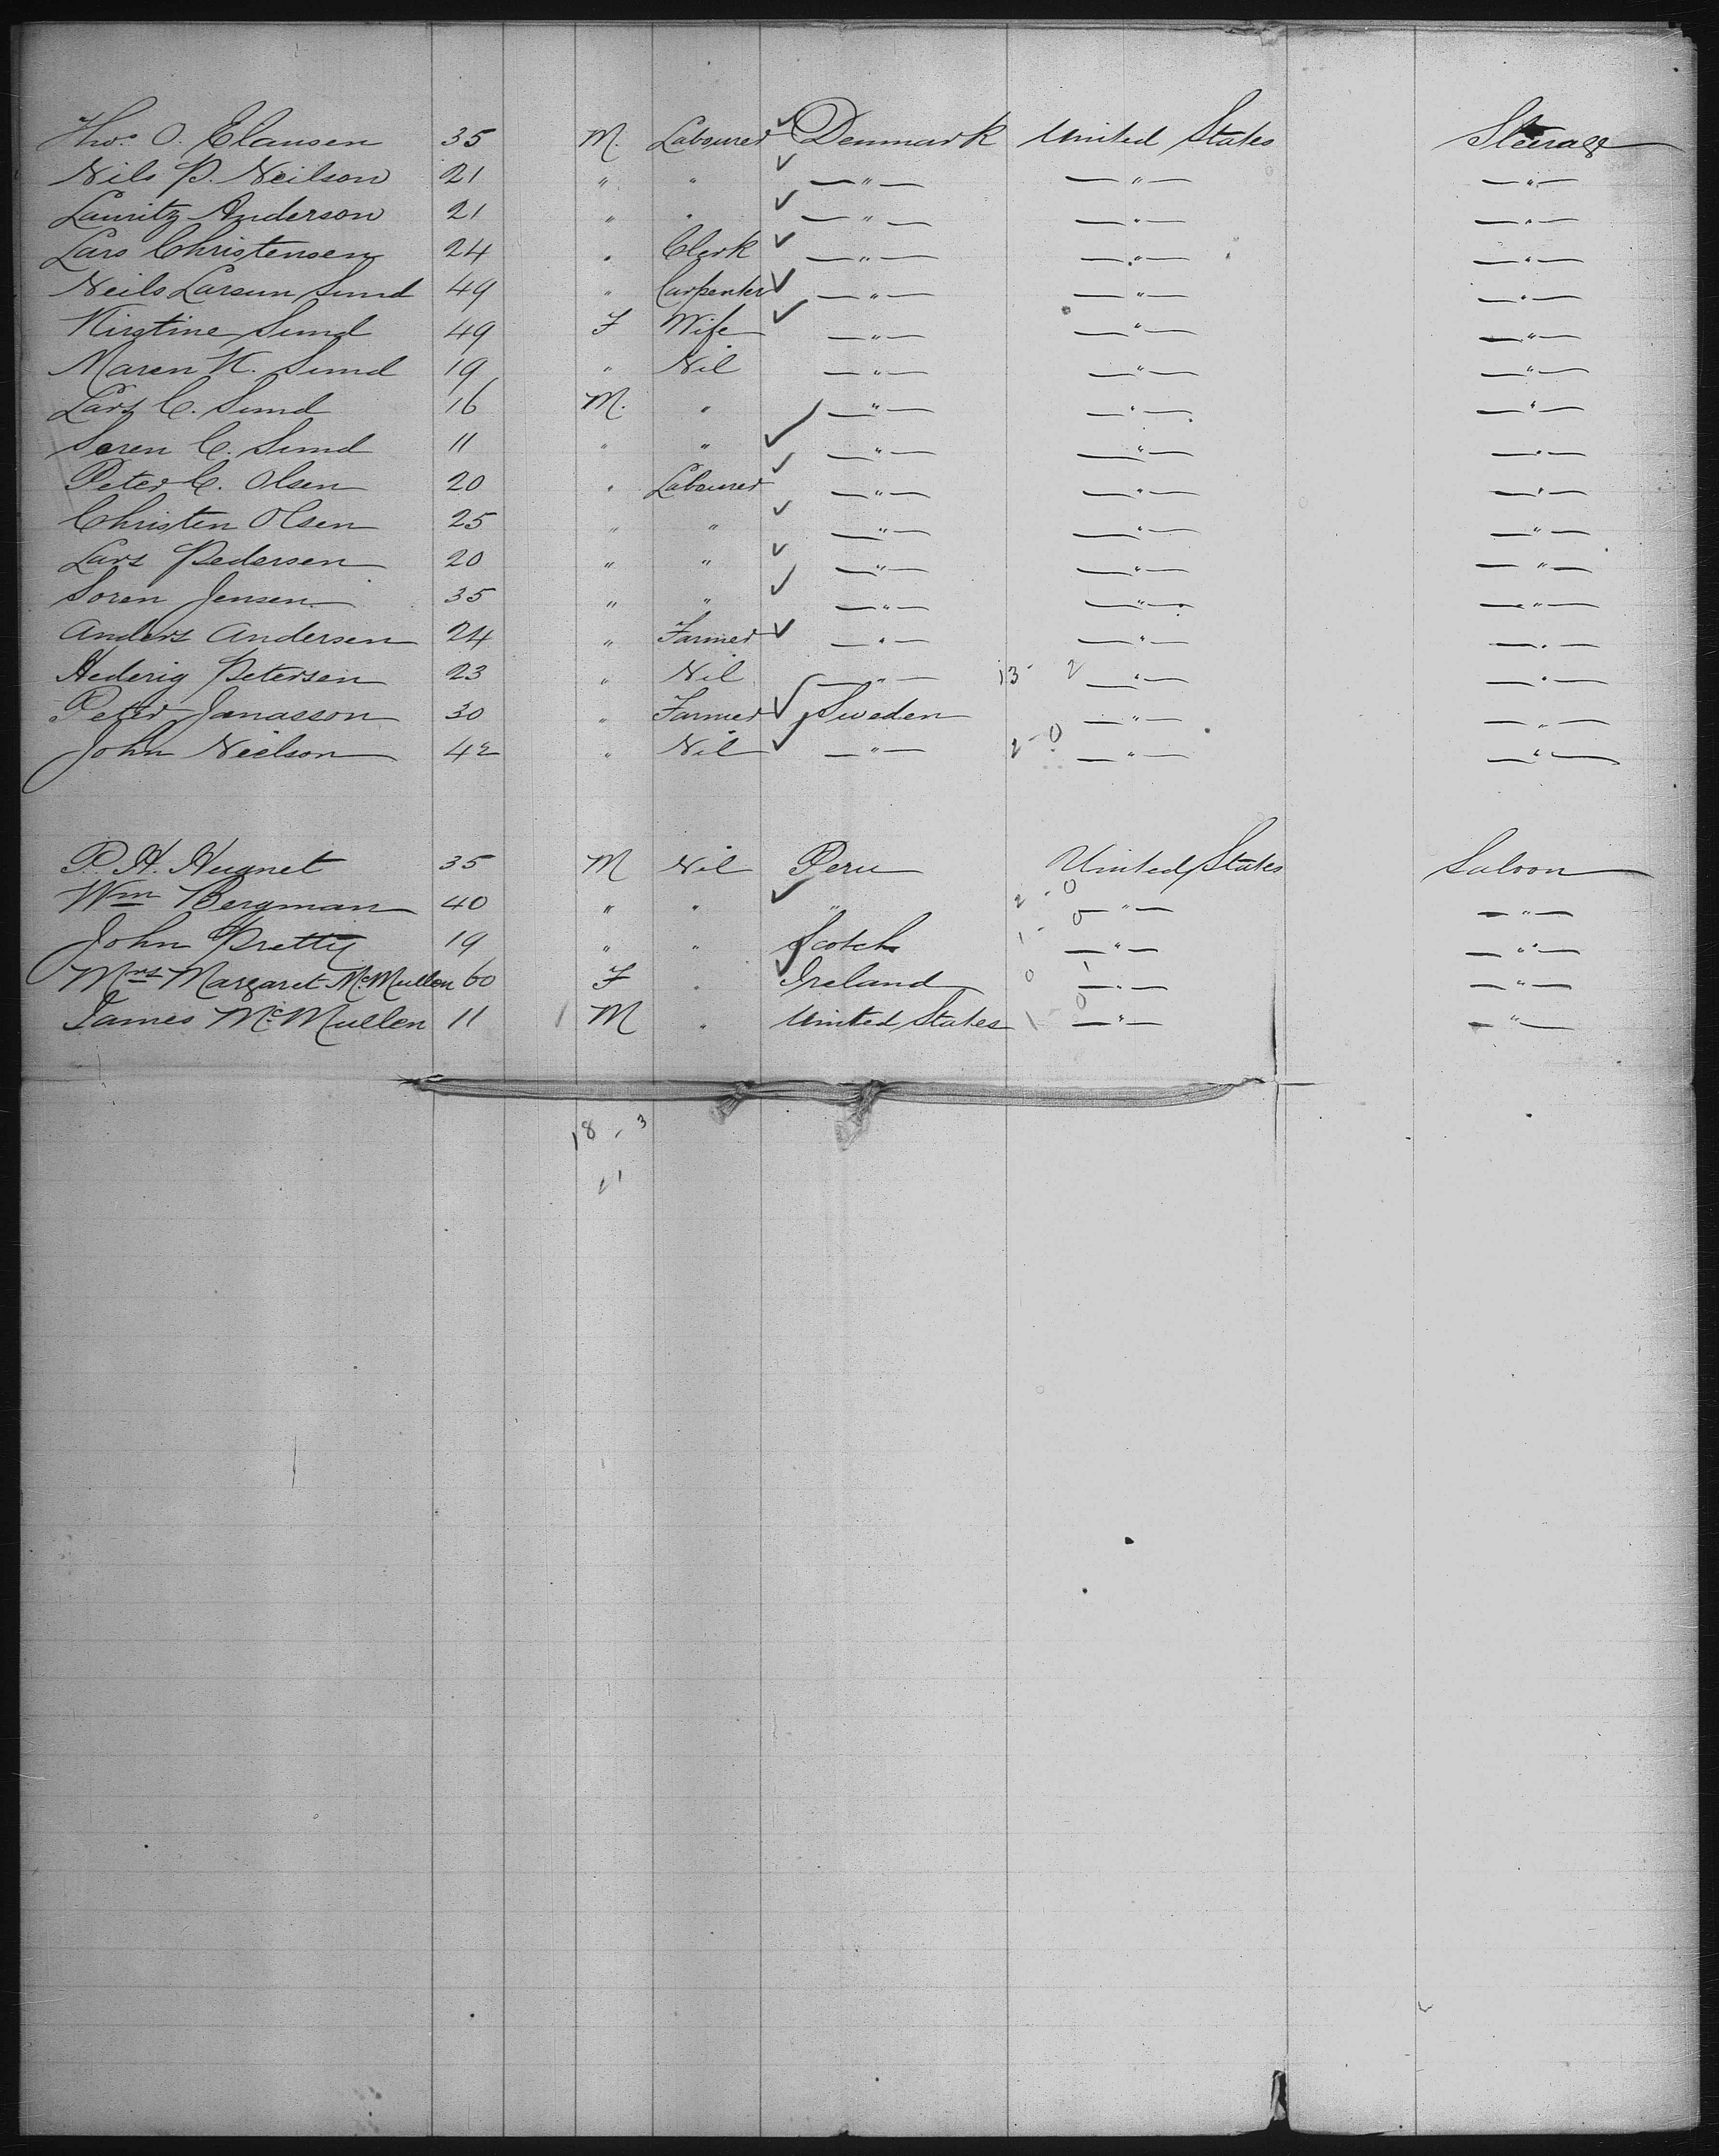 Thos. O. Clausen 35 M. Labourer Denmark United States Steerage
Nils P. Neilson 21 " " —"— —"— —"—
Lauritz Anderson 21 " " —"— —"— —"—
Lars Christensen 24 " Clerk —"— —"— —"—
Neils Larsen Sund 49 " Carpenter —"— —"— —"—
Kirstine Sund 49 F Wife —"— —"— —"—
Maren K. Sund 19 " Nil —"— —"— —"—
Lars C. Sund 16 M. " —"— —"— —"—
Soren C. Sund 11 " " —"— —"— —"—
Peter C. Olsen 20 " Labourer —"— —"— —"—
Christen Olsen 25 " " —"— —"— —"—
Lars Pedersen 20 " " —"— —"— —"—
Soren Jensen 35 " " —"— —"— —"—
Anders Andersen 24 " Farmer —"— —"— —"—
Hederig Petersen 23 " Nil —"— 13 - 2 —"— —"—
Peter Janasson 30 " Farmer Sweden —"— —"—
John Neilson 42 " Nil —"— 2 - 0 —"— —"—
P. H. Hugnet 35 M Nil Peru United States Saloon
Wm Bergman 40 " " " 2 - 0 —"— —"—
John Pretty 19 " " Scotch 1 - 0 —"— —"—
Mrs Margaret McMullen 60 F " Ireland 0 1 —"— —"—
James McMullen 11 1 M " United States 1 - 0 —"— —"—
18 - 3
21